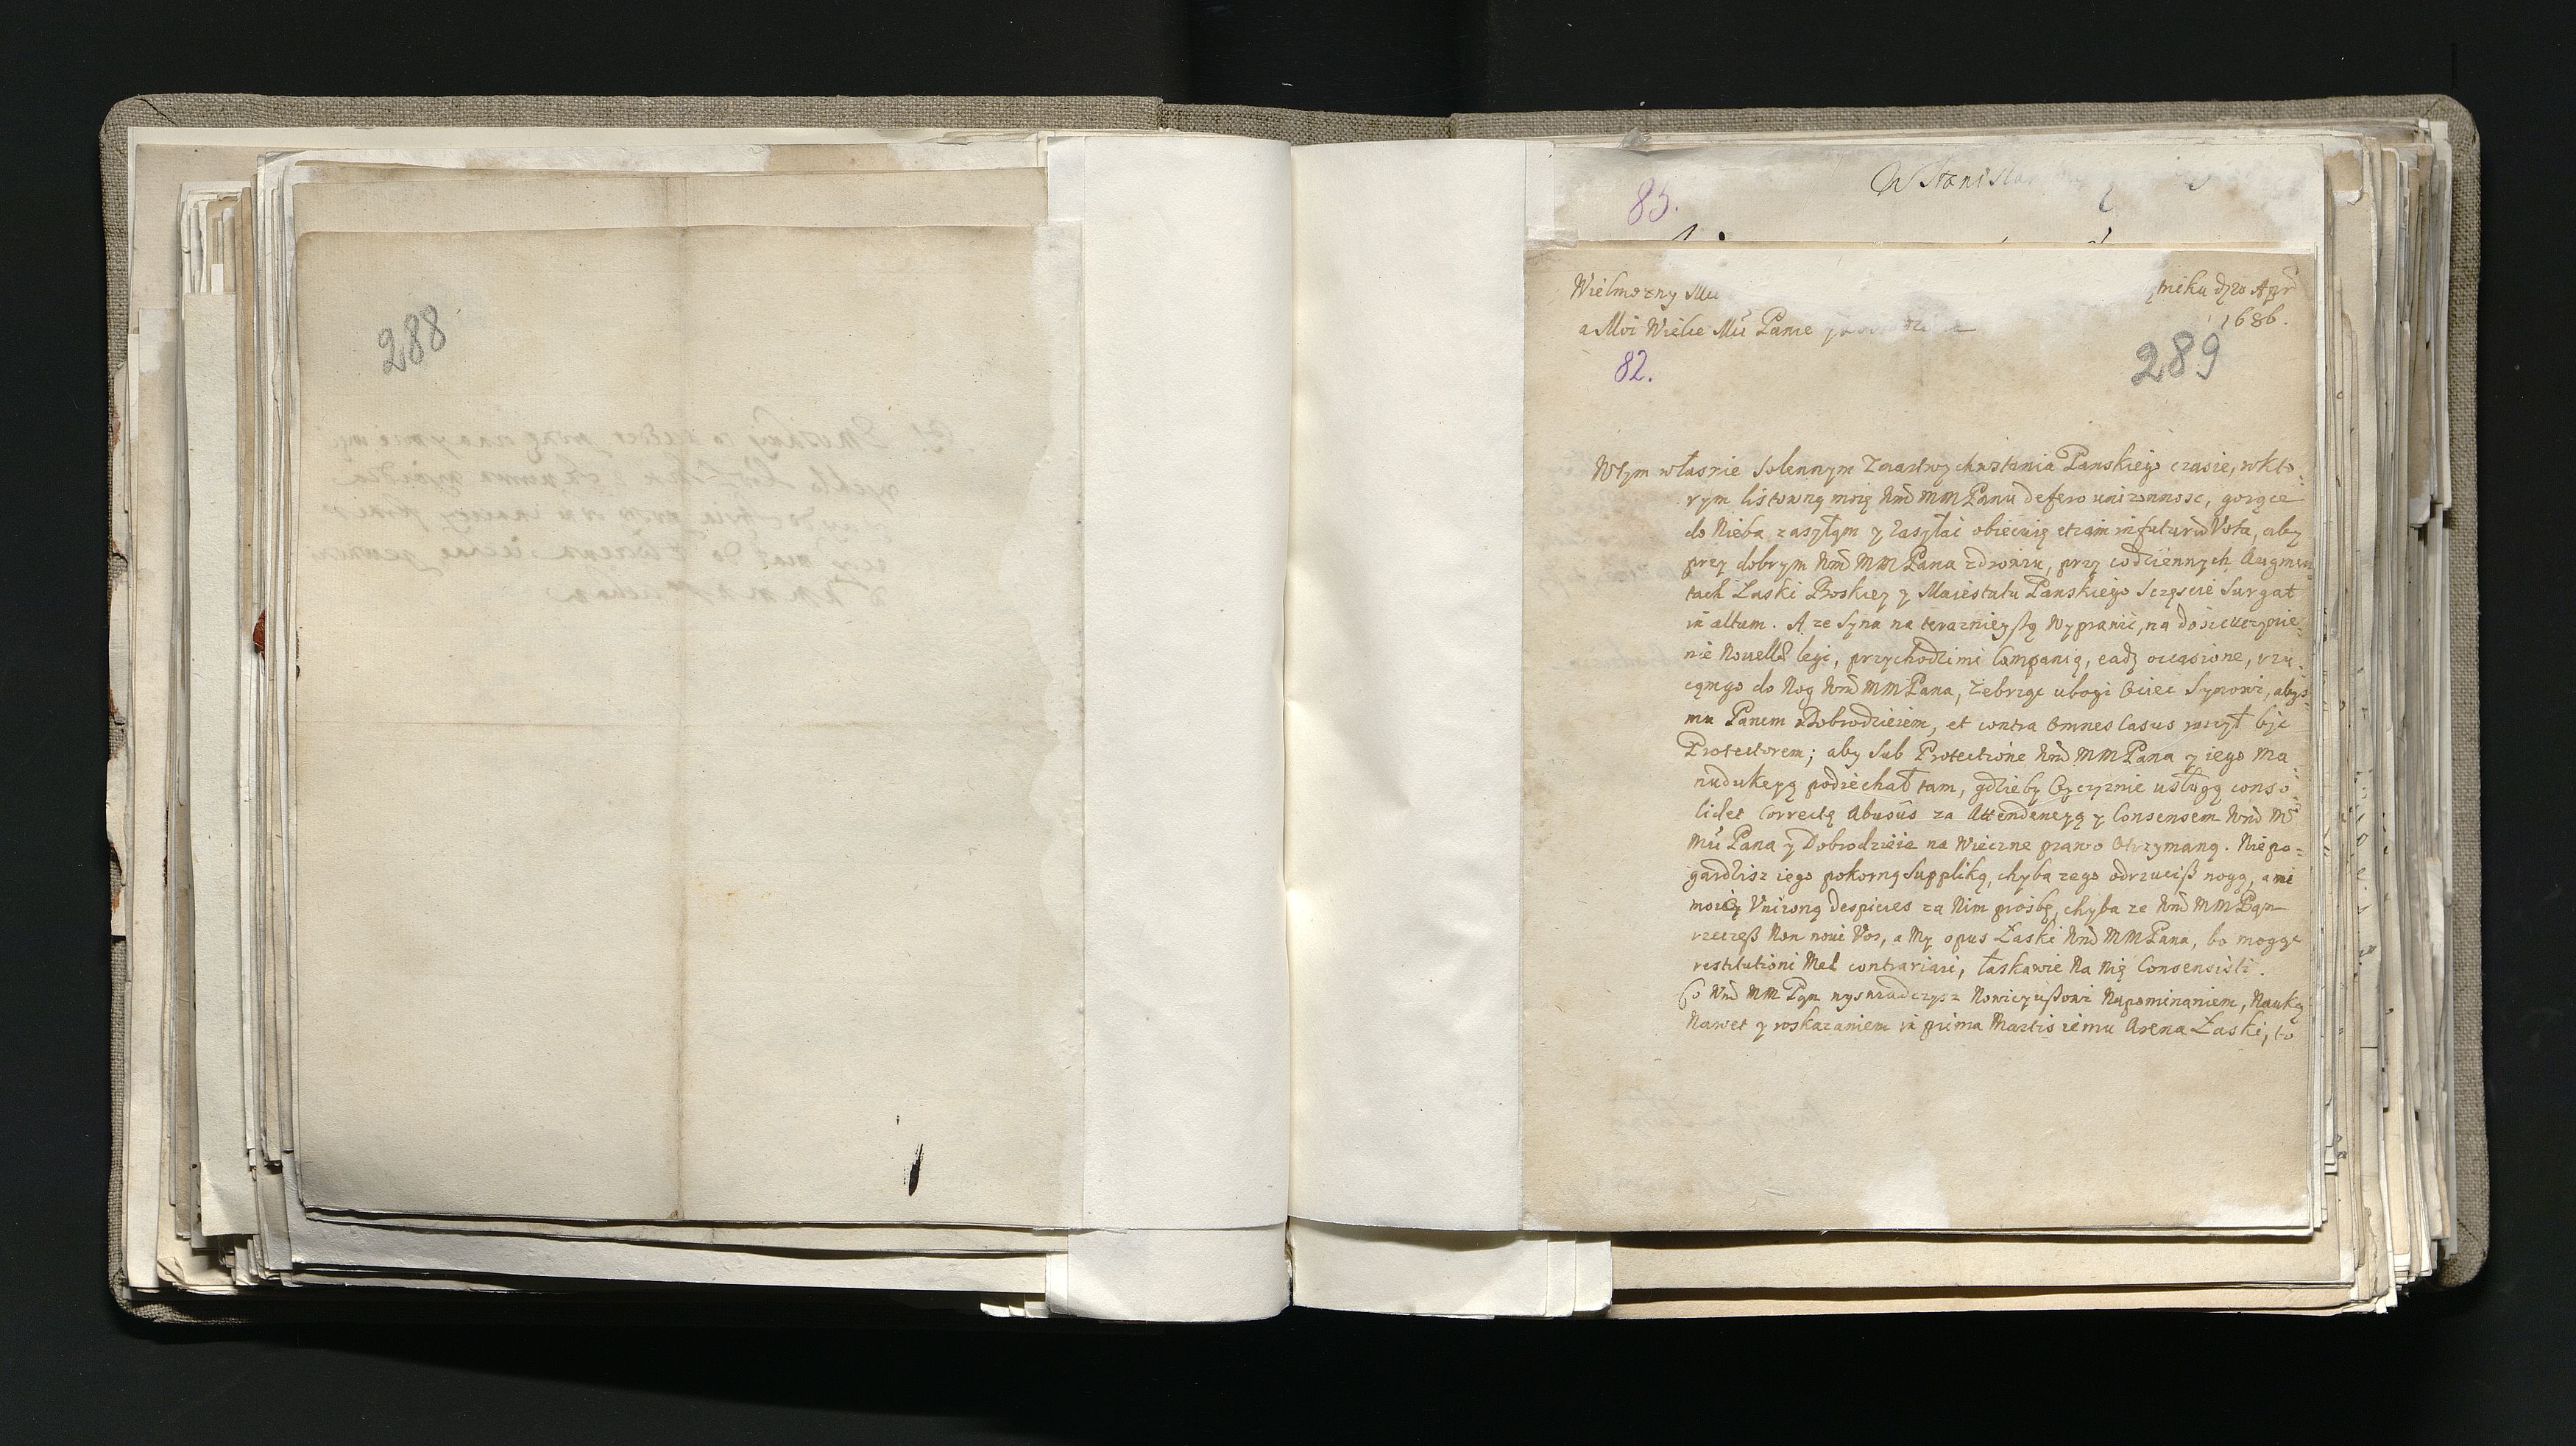 288
83.
W Stanisla
Wielmozny Mu
miku d 20 Apr
a Moi Wielce Mü Panie y
1686.
82.
289
Wtym własnie Solennym Zmartwychwstania Panskiego czasie, wkto-
rym listowną moię Wmd MM Panu defero unizonnosc, gorące
do Nieba zasyłąm y zasyłać obiecuię etiam in futurū Vota, aby
przy dobrym Wmd MM Pana zdrowiu, przy codziennych Augmen-
tach Łaski Boskiey y Maiestatu Panskiego Sczęscie Surgat
in altum. A ze Syna na teraznieyszą Wyprawić, na dosicuczynie-
nie Nouellæ legi, przychodzi mi Campanią, eadē occasione, rzu-
cąmgo do Nog Wmd MM Pana, Zebrząc ubogi Ociec Synowi, abys
mu Panem y Dobrodzieiem, et contra Omnes Casus raczył byc
Protectorem; aby Sub Protectione Wmd MM Pana y iego Ma-
nudukcyą podiechał tam, gdzieby Oyczyznie usługą conso-
lidet Correctą Abusūs za Attendencyą y Consensem Wmd M
Mü Pana y Dobrodzieia na Wieczne prawo Otrzymaną. Niepo-
gardzisz iego pokorną Suppliką, chyba zego odrzucisz nogą, ani
moią Vnizoną despicies za Nim prośbę, chyba ze Wmd MM Pąn
rzeczesz Non noui Vos, a My opus Łaski Wmd MM Pana, bo mogąc
restitutioni Mel contrariari, łaskawie Na Nię Consensisti.
Co Wmd MM Pąn wyswiadczysz Nowicyuszowi Napominaniem, Nauką
Nawet y roskazaniem in prima Martis iemu Arena Łaski, to